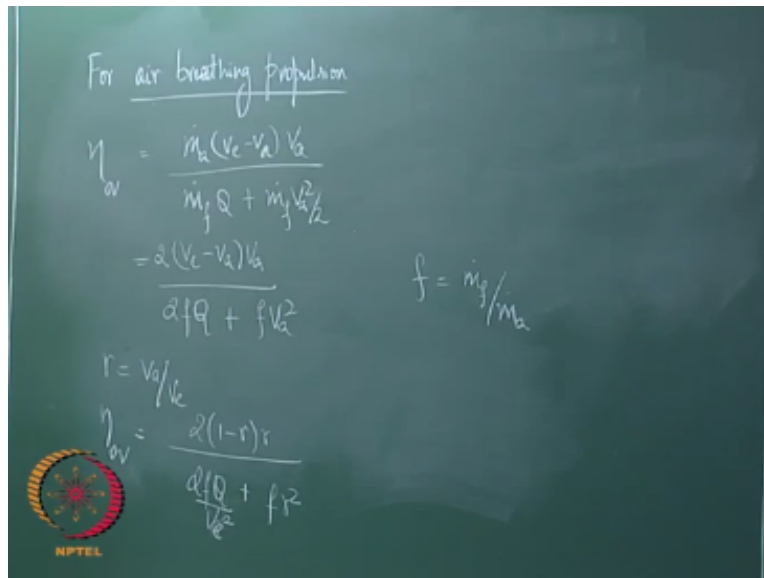 For air breathing propulsion
η_ov = ṁ_a (V_e - V_a) V_a / (ṁ_f Q + ṁ_f V_a²/2)
= 2(V_e - V_a)V_a / (2fQ + fV_a²)
f = ṁ_f/ṁ_a
r = V_a/V_e
η_ov = 2(1-r)r / (2fQ/V_e² + fr²)
NPTEL